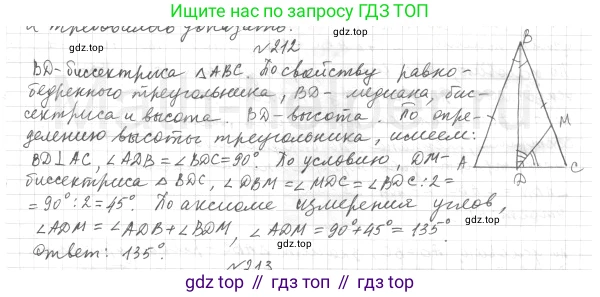 Ищите нас по запросу
ГДЗ ТОП
и требовалось доказать.
№212
BD-биссектриса △ABC. По свойству равно-
бедренного треугольника, BD- медиана, бис-
сектриса и высота. BD-высота. По опре-
делению высоты треугольника, имеем:
BD⊥AC, ∠ADB=∠BDC=90°. По условию, DM-
биссектриса △ BDC, ∠DBM=∠MDC=∠BDC:2=
=90°:2=45°. По аксиоме измерения углов,
∠ADM=∠ADB+∠BDM, ∠ADM=90°+45°=135°.
Ответ: 135°.
№213
B
M
A
D
C
gdz.top
gdz.top
gdz.top
gdz.top // гдз топ // gdz.top // гдз топ